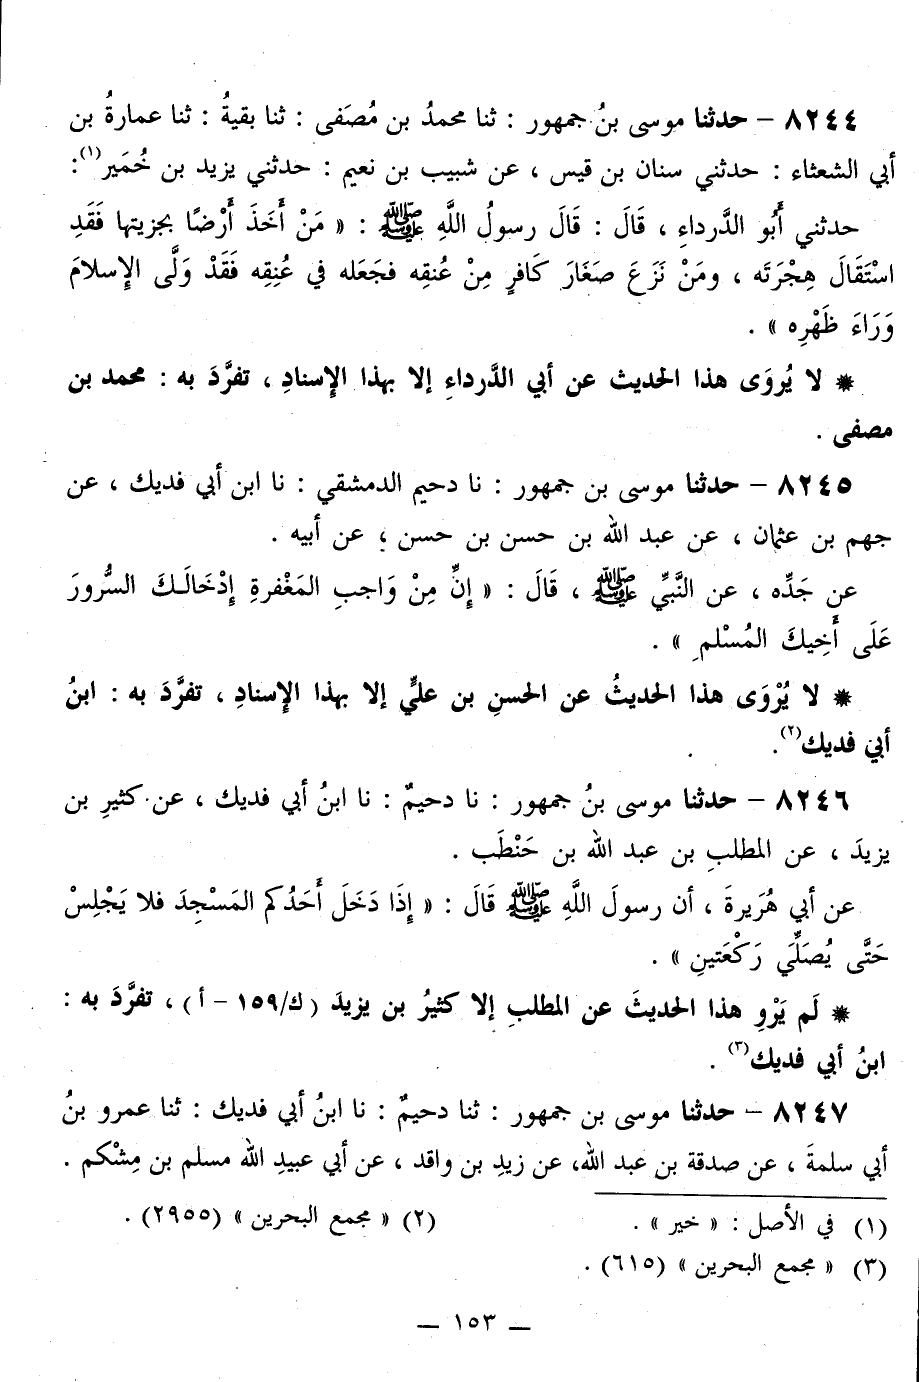 ٨٢٤٤ – حدثنا موسى بنُ جمهور : ثنا محمدُ بن مُصَفى : ثنا بقيةُ : ثنا عمارةُ بن
أبي الشعثاء : حدثني سنان بن قيس ، عن شبيب بن نعيم : حدثني يزيد بن خُمَير(١):
حدثني أَبُو الدَّرداءِ ، قَالَ : قَالَ رسولُ اللَّهِ ﷺ : « مَنْ أَخَذَ أَرْضًا بجزيتِها فَقَدِ
اسْتَقَالَ هِجْرَتَه ، ومَنْ نَزَعَ صَغَارَ كَافرٍ مِنْ عُنقِه فجَعَله في عُنِقِه فَقَدْ وَلَّى الإِسلامَ
وَرَاءَ ظَهْرِه » .
* لا يُروَى هذا الحديث عن أبي الدَّرداءِ إلا بهذا الإِسنادِ ، تفرَّدَ به : محمد بن
مصفى .
٨٢٤٥ – حدثنا موسى بن جمهور : نا دحيم الدمشقي : نا ابن أبي فديك ، عن
جهم بن عثمان ، عن عبد الله بن حسن بن حسن ، عن أبيه .
عن جَدِّه ، عن النَّبيِّ ﷺ ، قَالَ : « إِنَّ مِنْ وَاجبِ المَغْفرةِ إِدْخَالَكَ السُّرورَ
عَلَى أَخِيكَ المُسْلمِ » .
* لا يُرْوَى هذا الحديثُ عن الحسنِ بن عليٍّ إلا بهذا الإِسنادِ ، تفرَّدَ به : ابنُ
أبي فديك(٢).
٨٢٤٦ – حدثنا موسى بنُ جمهور : نا دحيمٌ : نا ابنُ أبي فديك ، عن كثيرِ بن
يزيدَ ، عن المطلبِ بن عبد الله بن حَنْطَب .
عن أبي هُرَيرةَ ، أن رسولَ اللَّهِ ﷺ قَالَ : « إِذَا دَخَلَ أَحَدُكم المَسْجِدَ فلا يَجْلِسْ
حَتَّى يُصَلِّيَ رَكْعَتينِ » .
* لَم يَرْوِ هذا الحديثَ عن المطلبِ إلا كثيرُ بن يزيدَ (ك/١٥٩ – أ) ، تفرَّدَ به :
ابنُ أبي فديك(٣) .
٨٢٤٧ – حدثنا موسى بن جمهور : ثنا دحيمٌ : نا ابنُ أبي فديك : ثنا عمرو بنُ
أبي سلمةَ ، عن صدقة بن عبد الله، عن زيدِ بن واقد ، عن أبي عبيدِ الله مسلم بن مِشْكم .
(١) في الأصل : « خير » . (٢) « مجمع البحرين » (٢٩٥٥) .
(٣) « مجمع البحرين » (٦١٥) .
– ١٥٣ –